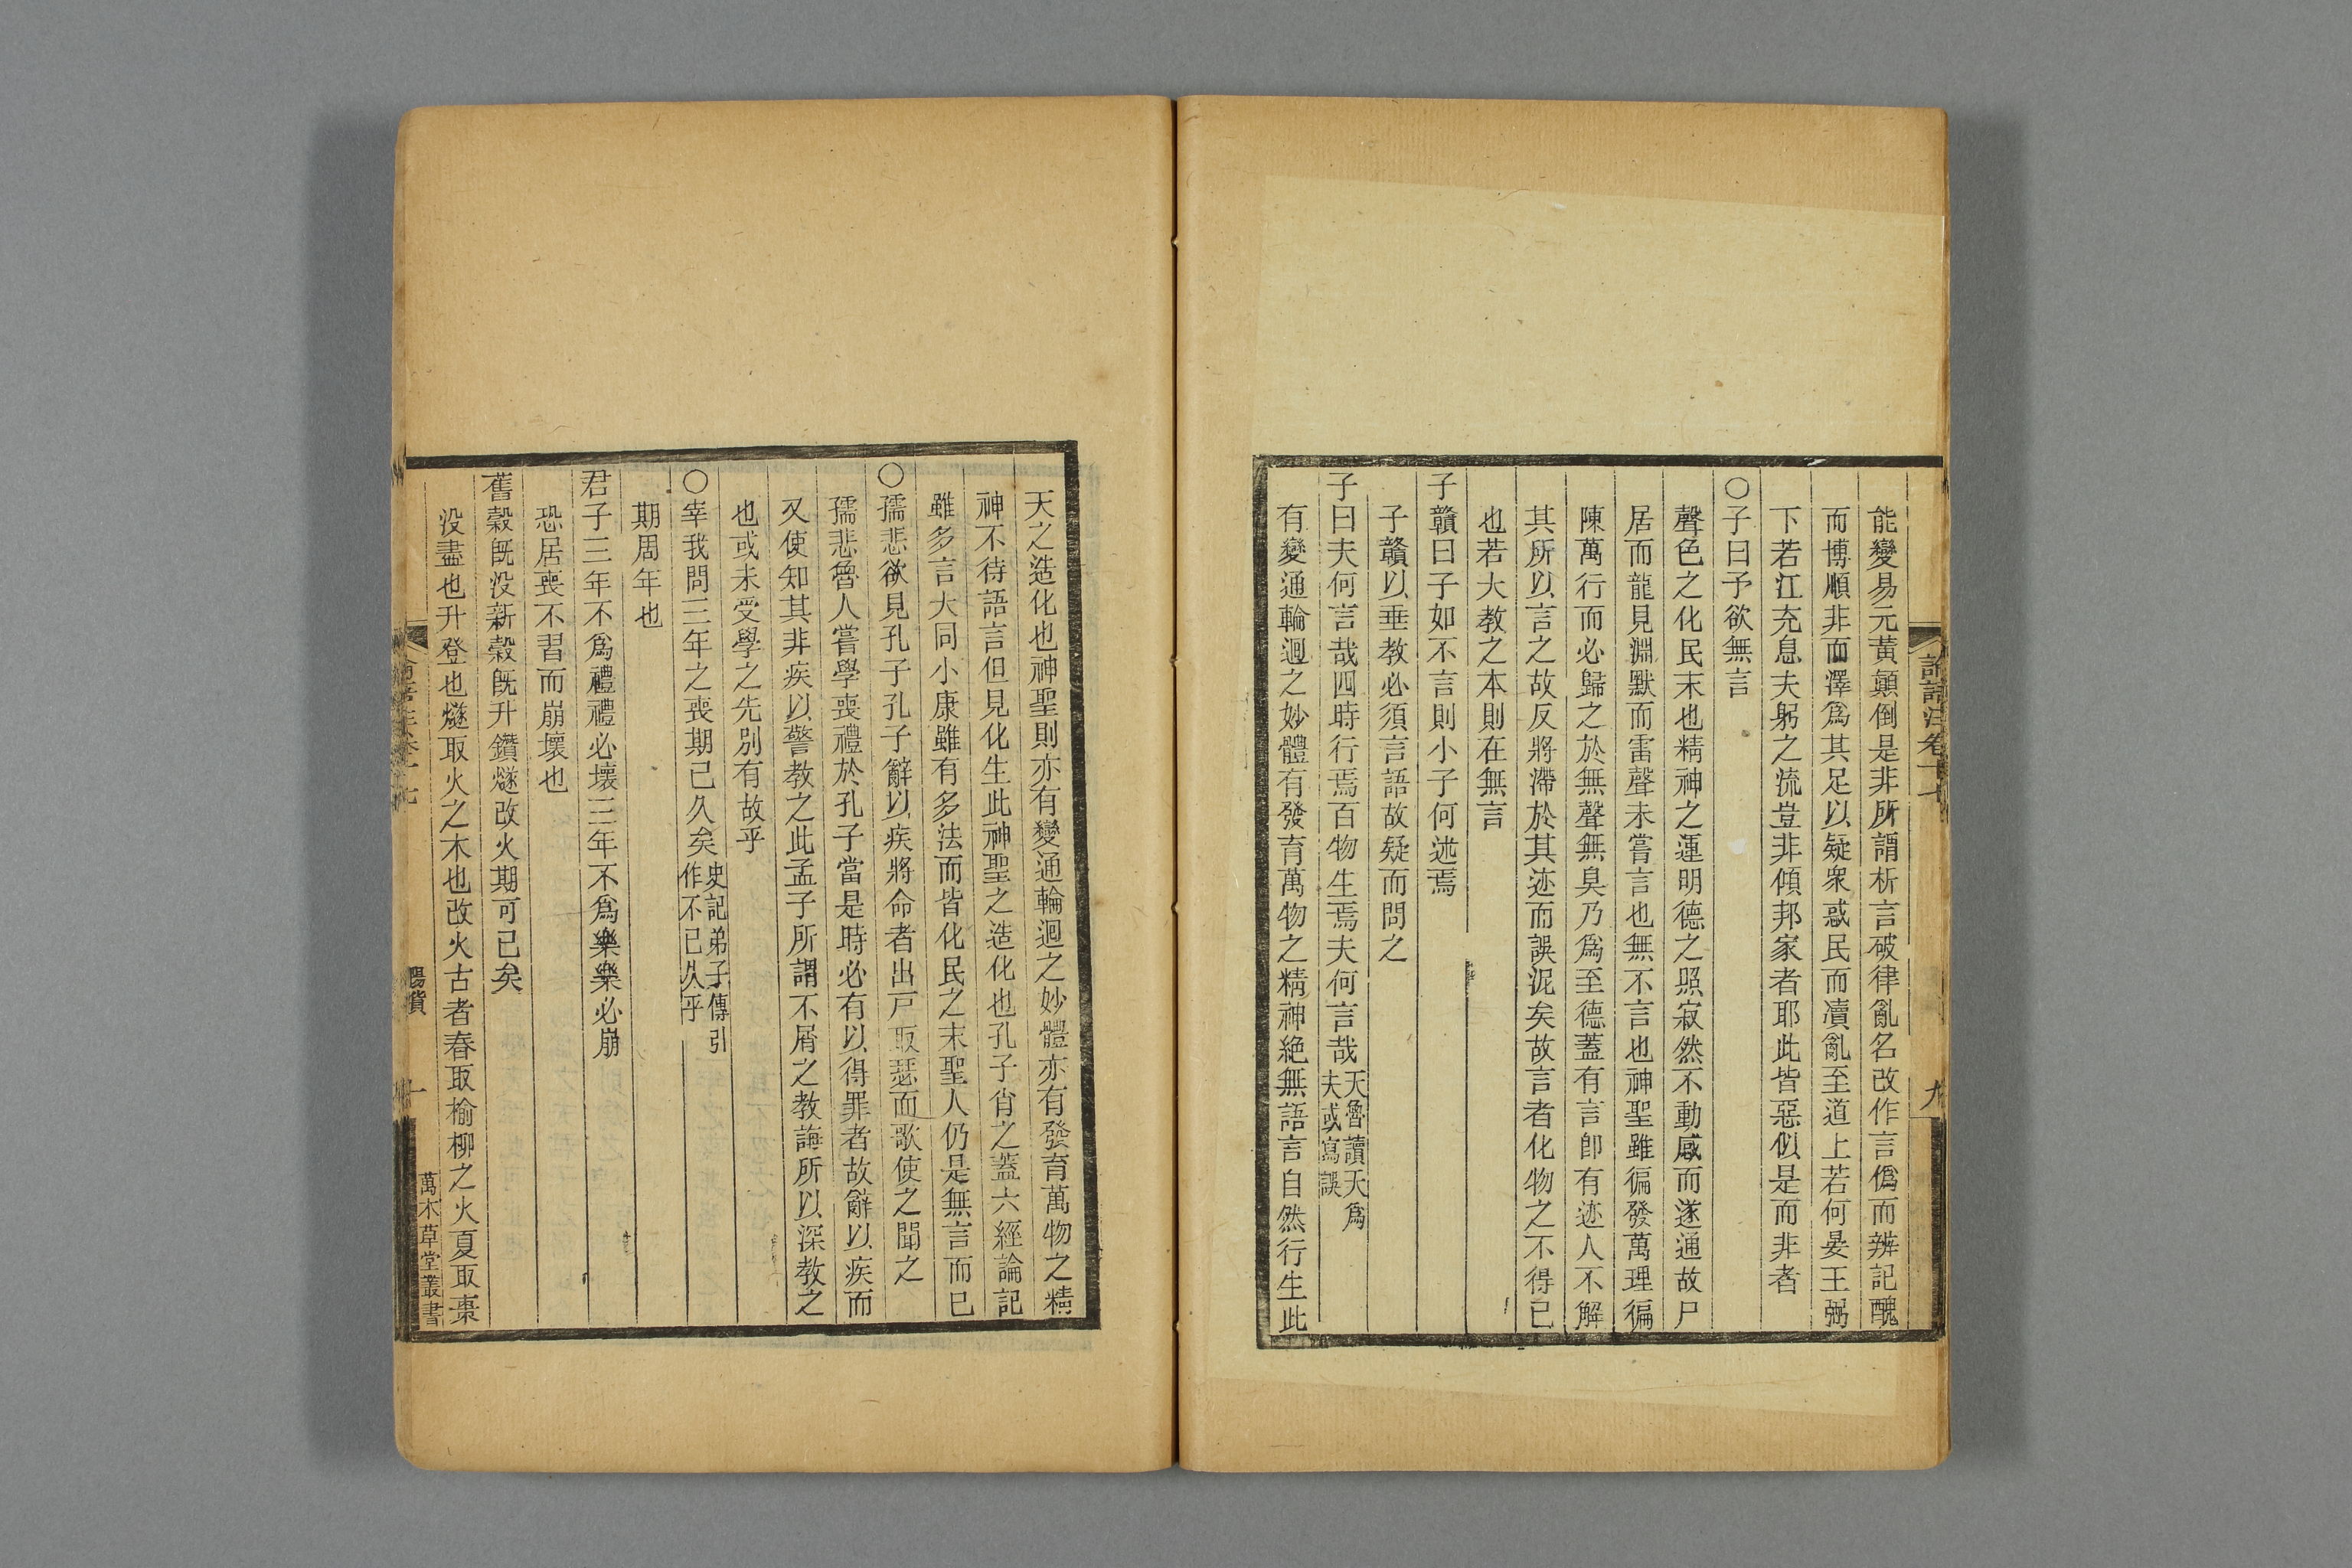 論語注卷十七
九
能變易元黃顛倒是非所謂析言破律亂名改作言僞而辨記醜
而博順非而澤爲其足以疑衆惑民而瀆亂至道上若何晏王弼
下若江充息夫躬之流豈非傾邦家者耶此皆惡似是而非者
○子曰予欲無言
聲色之化民末也精神之運明德之照寂然不動感而遂通故尸
居而龍見淵默而雷聲未嘗言也無不言也神聖雖徧發萬理徧
陳萬行而必歸之於無聲無臭乃爲至德蓋有言卽有迹人不解
其所以言之故反將滯於其迹而誤泥矣故言者化物之不得已
也若大教之本則在無言
子贛曰子如不言則小子何述焉
子贛以垂教必須言語故疑而問之
子曰夫何言哉四時行焉百物生焉夫何言哉
天魯讀天爲
夫或寫誤
有變通輪迴之妙體有發育萬物之精神絶無語言自然行生此
天之造化也神聖則亦有變通輪迴之妙體亦有發育萬物之精
神不待語言但見化生此神聖之造化也孔子肖之蓋六經論記
雖多言大同小康雖有多法而皆化民之末聖人仍是無言而已
○孺悲欲見孔子孔子辭以疾將命者出戸取瑟而歌使之聞之
孺悲魯人嘗學喪禮於孔子當是時必有以得罪者故辭以疾而
又使知其非疾以警教之此孟子所謂不屑之教誨所以深教之
也或未受學之先別有故乎
○宰我問三年之喪期已久矣
史記弟子傳引
作不已久乎
期周年也
君子三年不爲禮禮必壞三年不爲樂樂必崩
恐居喪不習而崩壞也
舊榖既没新榖既升鑽燧改火期可已矣
没盡也升登也燧取火之木也改火古者春取榆柳之火夏取棗
陽貨
十
萬木草堂叢書